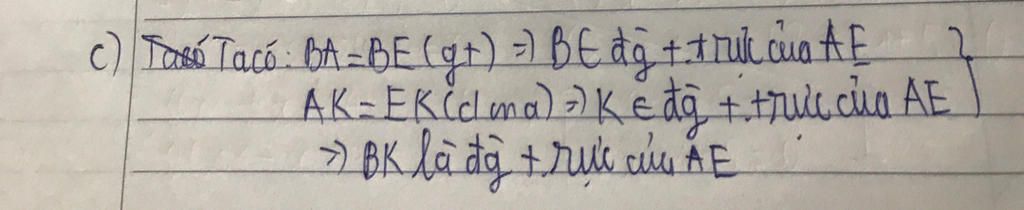 c) Ta có Ta có: BA = BE (gt) => B ∈ đg̃ t.trực của AE
AK = EK (cl ma) => K ∈ đg̃ t.trực của AE
=> BK là đg̃ t.rực của AE